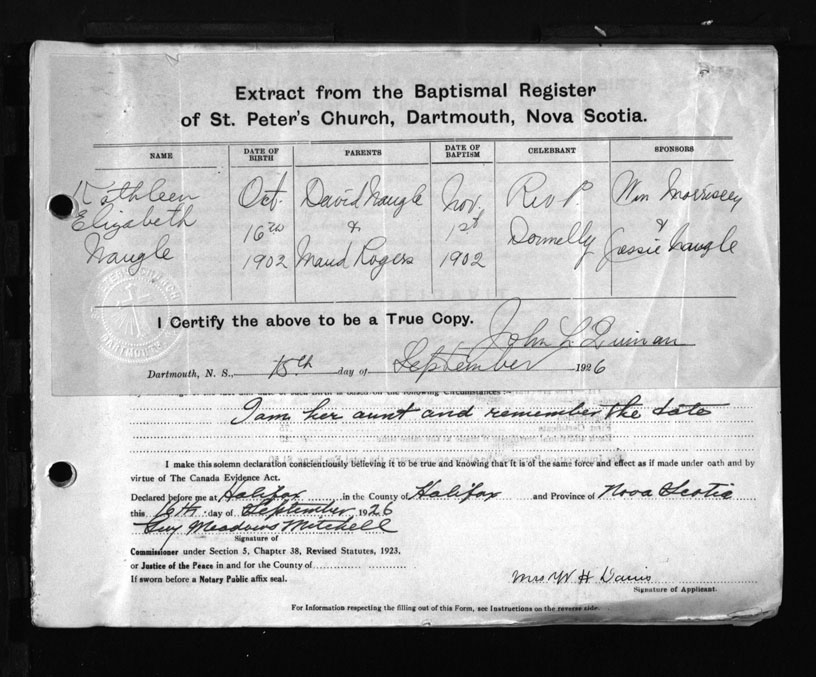 Extract from the Baptismal Register
of St. Peter's Church, Dartmouth, Nova Scotia.
NAME DATE OF BIRTH PARENTS DATE OF BAPTISM CELEBRANT SPONSORS
Kathleen Oct. David Naugle Nov. Rev P. Wm Morrissey
Elizabeth 16th & 1st Donnelly &
Naugle 1902 Maud Rogers 1902 Jessie Naugle
I Certify the above to be a True Copy. John L Quinan
Dartmouth, N. S., 15th day of September 1926
I am her aunt and remember the date
I make this solemn declaration conscientiously believing it to be true and knowing that it is of the same force and effect as if made under oath and by
virtue of The Canada Evidence Act.
Declared before me at Halifax in the County of Halifax and Province of Nova Scotia
this 16th day of September 1926
Guy Meadows Mitchell
Signature of
Commissioner under Section 5, Chapter 38, Revised Statutes, 1923,
or Justice of the Peace in and for the County of
If sworn before a Notary Public affix seal.
Mrs W H Davis
Signature of Applicant.
For Information respecting the filling out of this Form, see Instructions on the reverse side.